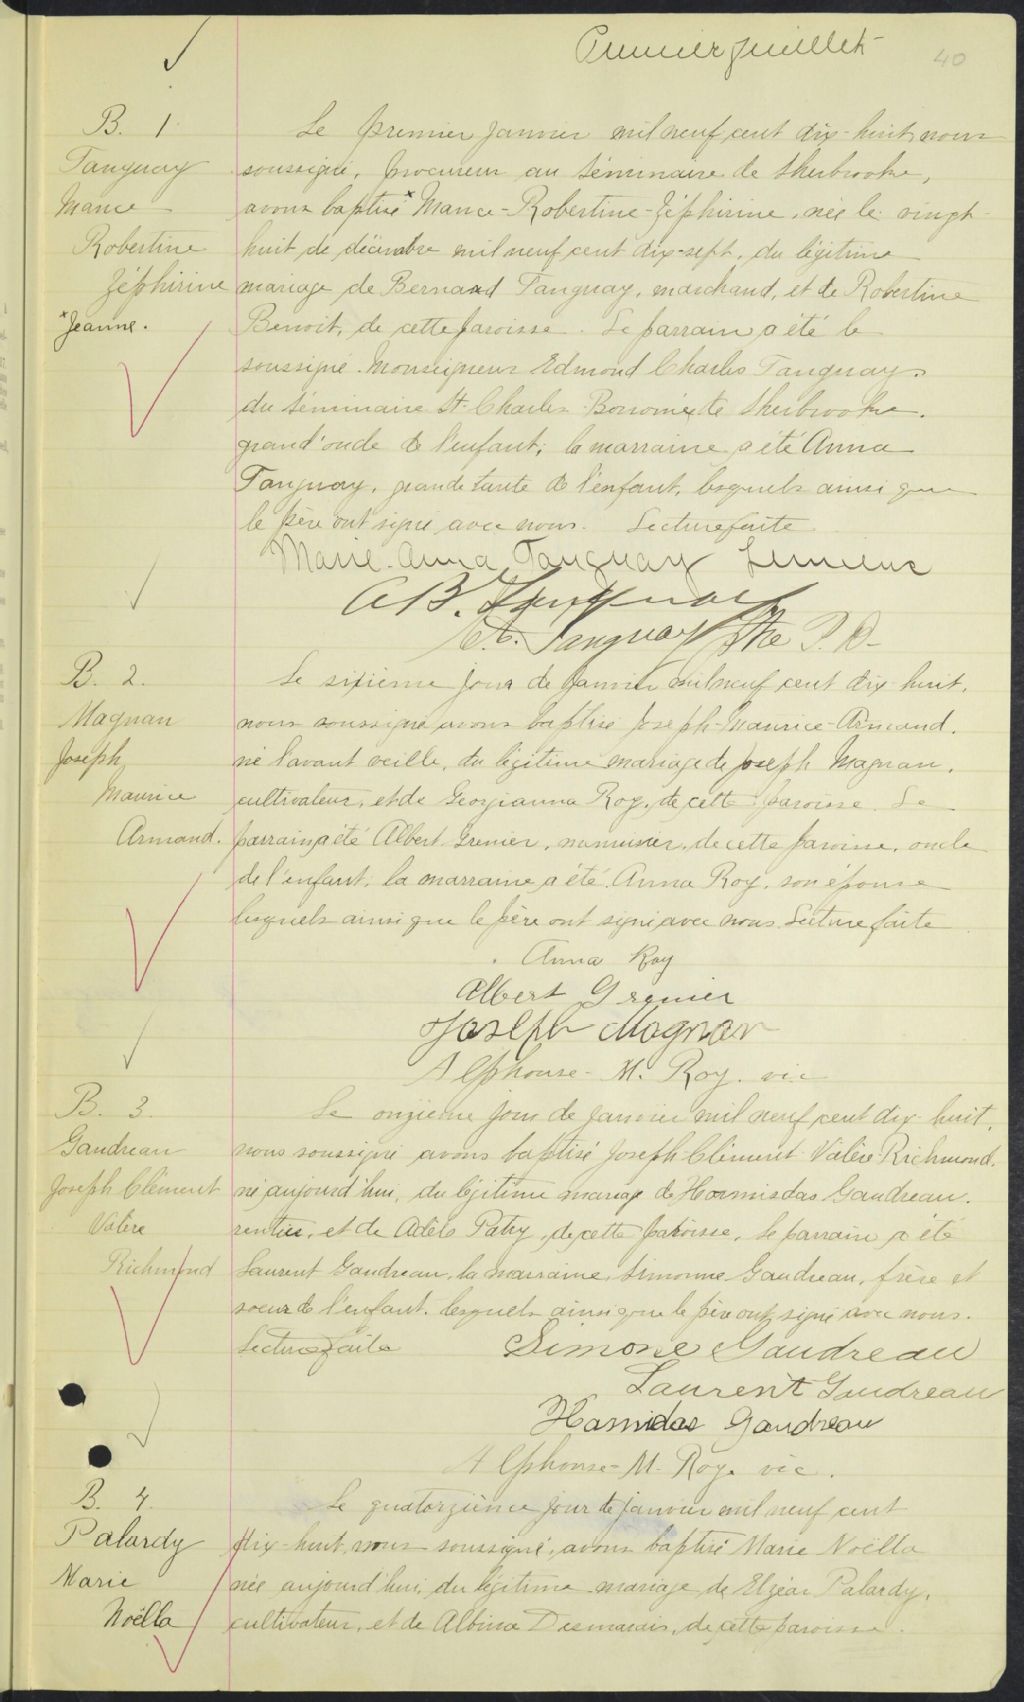 Premier feuillet
40
B. 1
Tanguay
Mance
Robertine
Zéphirine
*Jeanne.
Le premier janvier mil neuf cent dix-huit, nous
soussigné, procureur au séminaire de Sherbrooke,
avons baptisé * Mance-Robertine-Zéphirine, née le vingt
huit de décembre mil neuf cent dix-sept, du légitime
mariage de Bernard Tanguay, marchand, et de Robertine
Benoit, de cette paroisse. Le parrain a été le
soussigné Monseigneur Edmond Charles Tanguay,
du Séminaire St-Charles Borromée de Sherbrooke,
grand'oncle de l'enfant; la marraine a été Anna
Tanguay, grande tante de l'enfant, lesquels ainsi que
le père ont signé avec nous. Lecture faite
Marie-Anna Tanguay Lemieux
A B. Tanguay
E. C. Tanguay Ptre P. D.
B. 2.
Magnan
Joseph
Maurice
Armand.
Le sixième jour de janvier mil neuf cent dix-huit,
nous soussigné avons baptisé Joseph-Maurice-Armand,
né l'avant veille, du légitime mariage de Joseph Magnan,
cultivateur, et de Georgianna Roy, de cette paroisse. Le
parrain a été Albert Grenier, menuisier, de cette paroisse, oncle
de l'enfant; la marraine a été Anna Roy, son épouse
lesquels ainsi que le père ont signé avec nous. Lecture faite
Anna Roy
Albert Grenier
Joseph Magnan
Alphonse-M. Roy. vic
B. 3.
Gaudreau
Joseph Clément
Valère
Richmond
Le onzième jour de janvier mil neuf cent dix-huit,
nous soussigné avons baptisé Joseph-Clément Valère Richmond,
né aujourd'hui, du légitime mariage de Hormisdas Gaudreau,
rentier, et de Adèle Patry, de cette paroisse. Le parrain a été
Laurent Gaudreau, la marraine, Simonne Gaudreau, frère et
soeur de l'enfant, lesquels ainsi que le père ont signé avec nous.
Lecture faite
Simone Gaudreau
Laurent Gaudreau
Hormidas Gaudreau
Alphonse-M. Roy. vic.
B. 4.
Palardy
Marie
Noëlla
Le quatorzième jour de janvier mil neuf cent
dix-huit, nous soussigné, avons baptisé Marie Noëlla
née aujourd'hui, du légitime mariage de Elzéar Palardy,
cultivateur, et de Albina Desmarais, de cette paroisse.